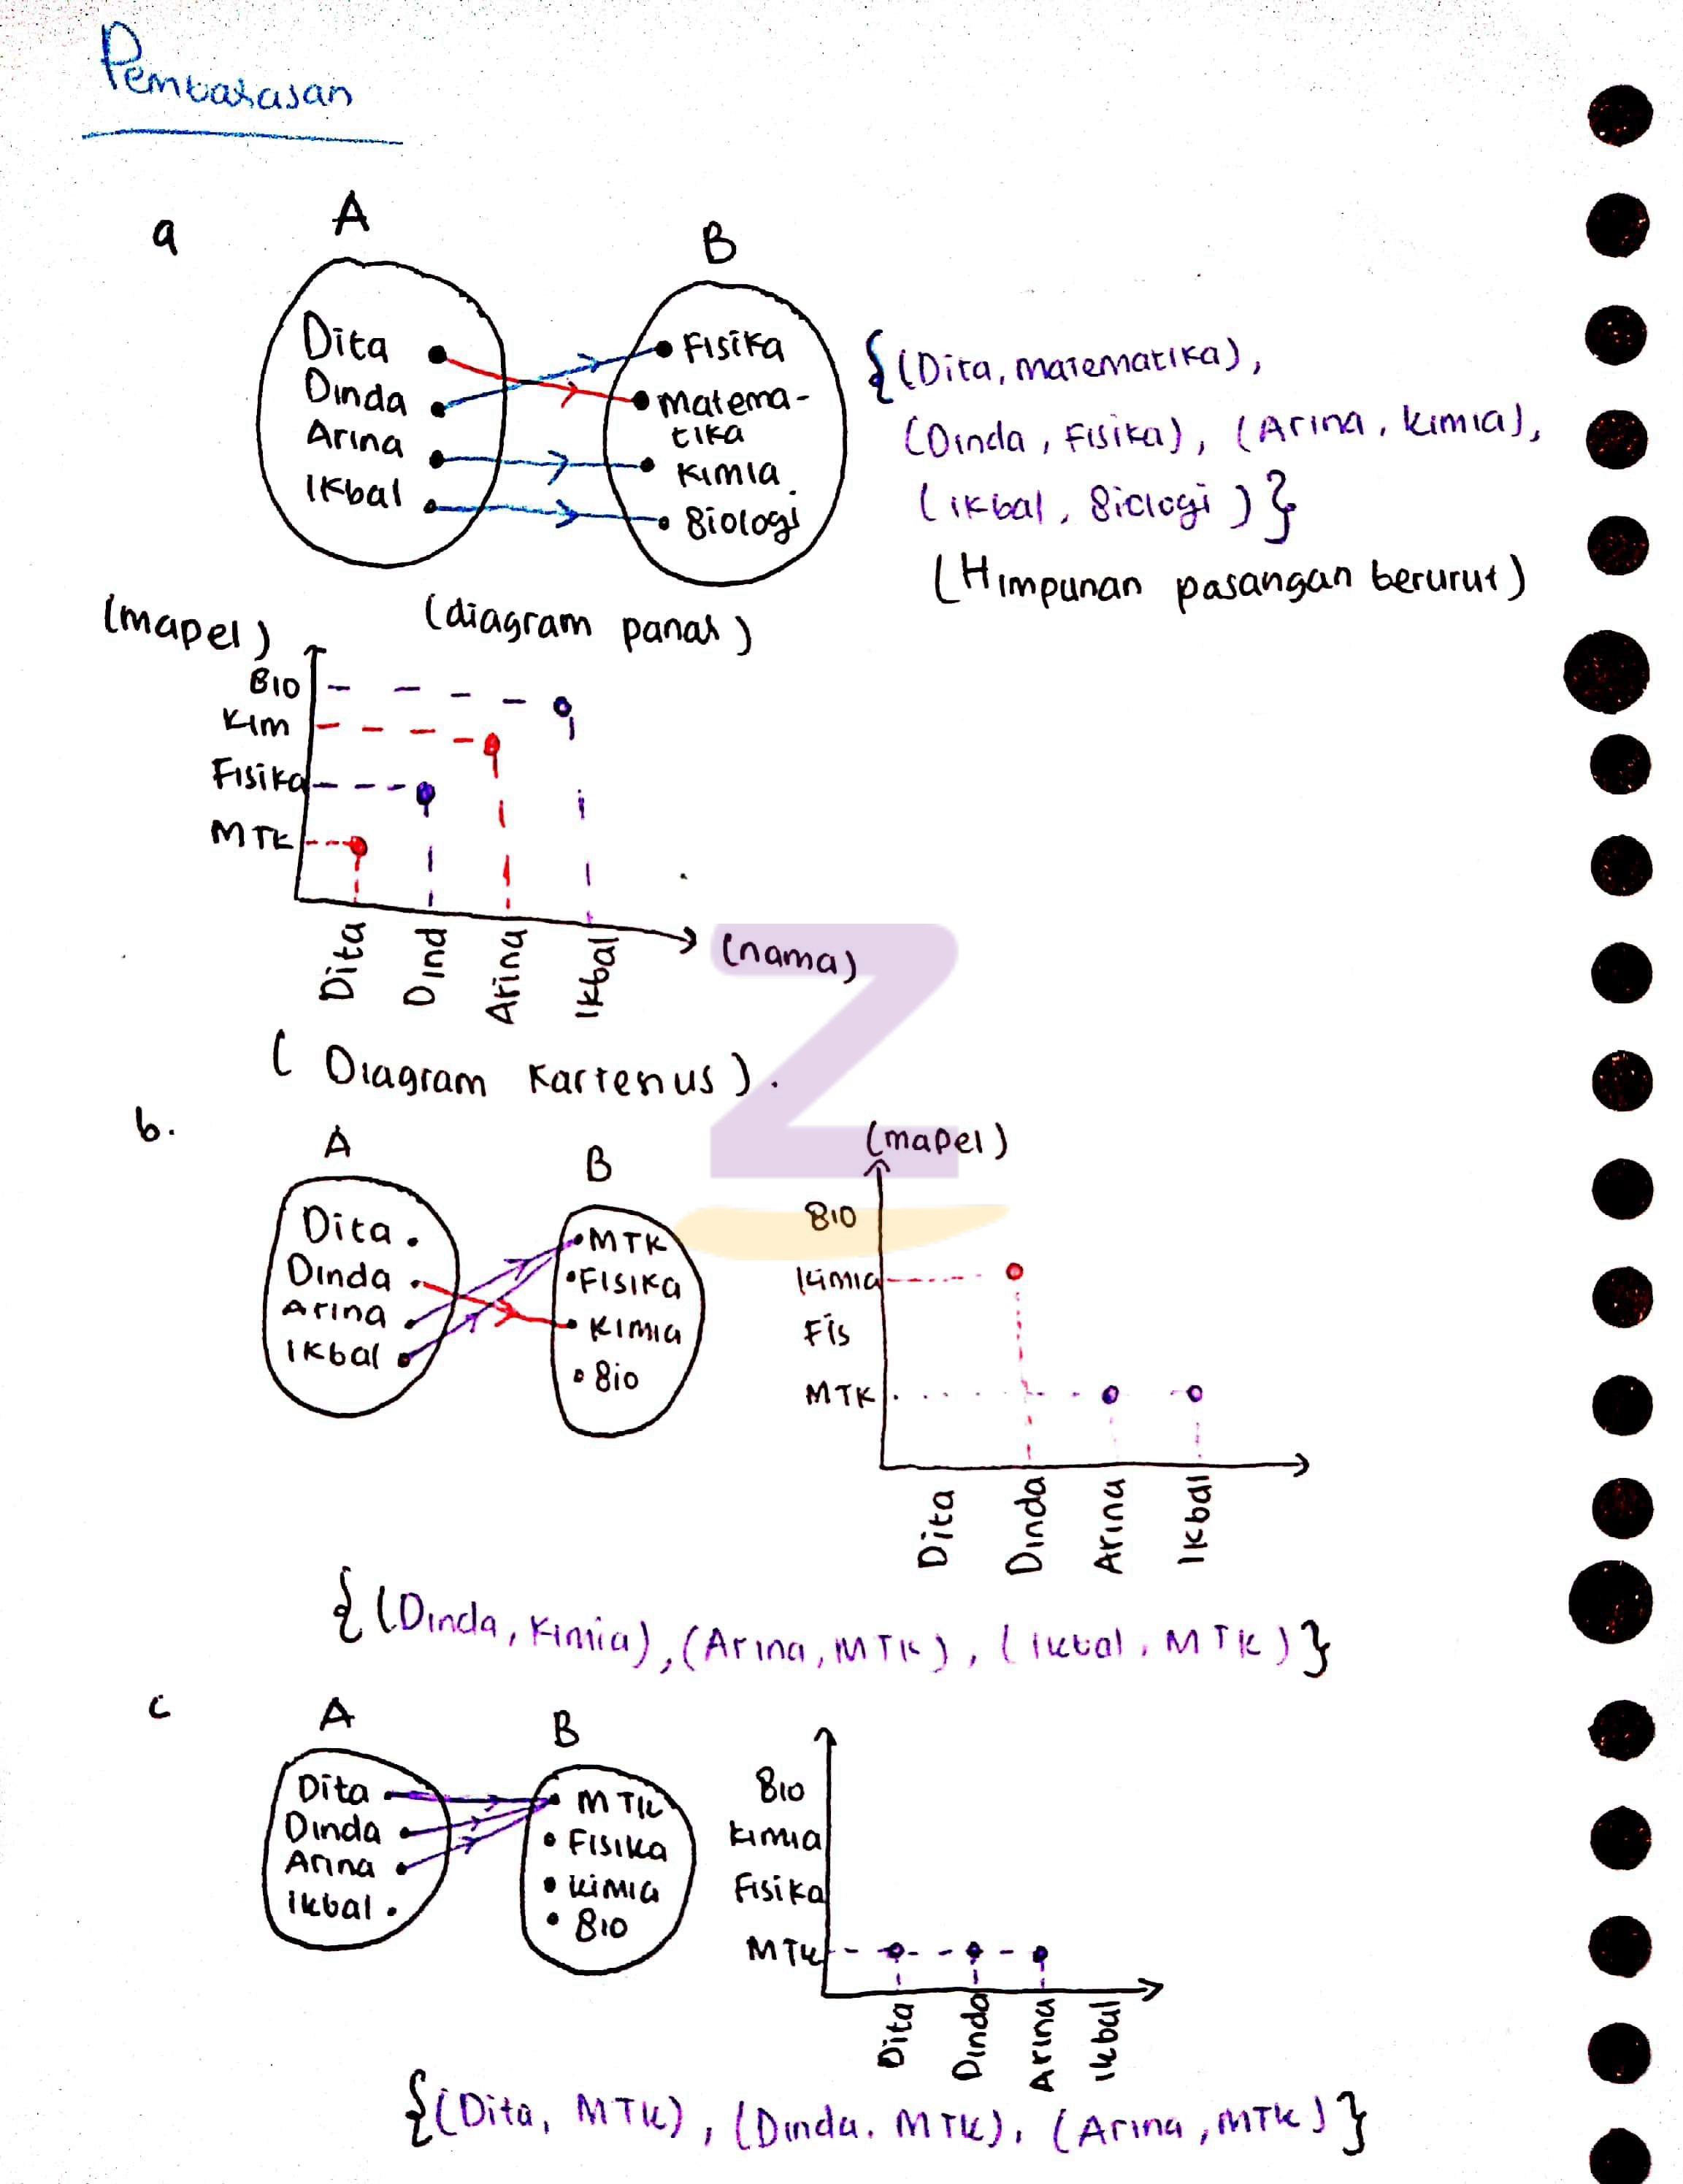 Pembahasan
a
A
B
Dita
Dinda
Arina
Ikbal
Fisika
Matema-
tika
Kimia
Biologi
{(Dita, matematika),
(Dinda, Fisika), (Arina, kimia),
(Ikbal, Biologi)}
(Himpunan pasangan berurut)
(diagram panah)
(mapel)
Bio
Kim
Fisika
MTK
Dita
Dind
Arina
Ikbal
(nama)
(Diagram Kartesius).
b.
A
B
Dita
Dinda
Arina
Ikbal
MTK
Fisika
Kimia
Bio
(mapel)
Bio
Kimia
Fis
MTK
Dita
Dinda
Arina
Ikbal
{(Dinda, Kimia), (Arina, MTK), (Ikbal, MTK)}
c
A
B
Dita
Dinda
Arina
Ikbal
MTK
Fisika
Kimia
Bio
Bio
Kimia
Fisika
MTK
Dita
Dinda
Arina
Ikbal
{(Dita, MTK), (Dinda. MTK), (Arina, MTK)}
Z